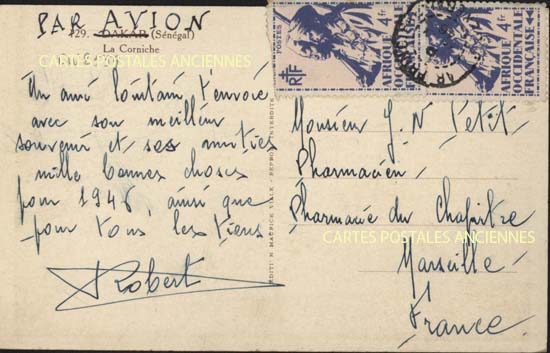 PAR AVION
29. DAKAR (Sénégal)
La Corniche
CARTES POSTALES ANCIENNES
Un ami lointain t'envoie
avec son meilleur
souvenir et ses
mille bonnes choses
pour 1946, ainsi que
pour tous les tiens
Robert
EDITION MAURICE VIALE - REPRODUCTION INTERDITE
POSTES
4F
RF
AFRIQUE
OCCIDENTALE
FRANÇAISE
4F
AFRIQUE
OCCIDENTALE
FRANÇAISE
Monsieur J. N Petit
Pharmacien
Pharmacie du Chapitre
CARTES POSTALES ANCIENNES
Marseille
France